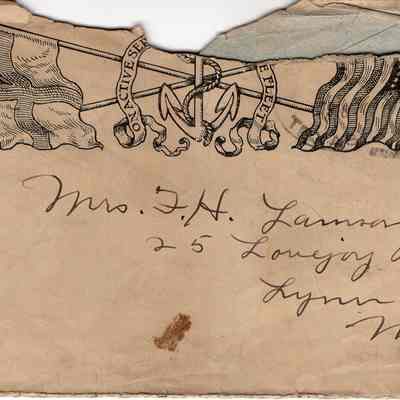 ON ACTIVE SER
E FLEET
Mrs. F. H. Lamson
25 Lovejoy
Lynn